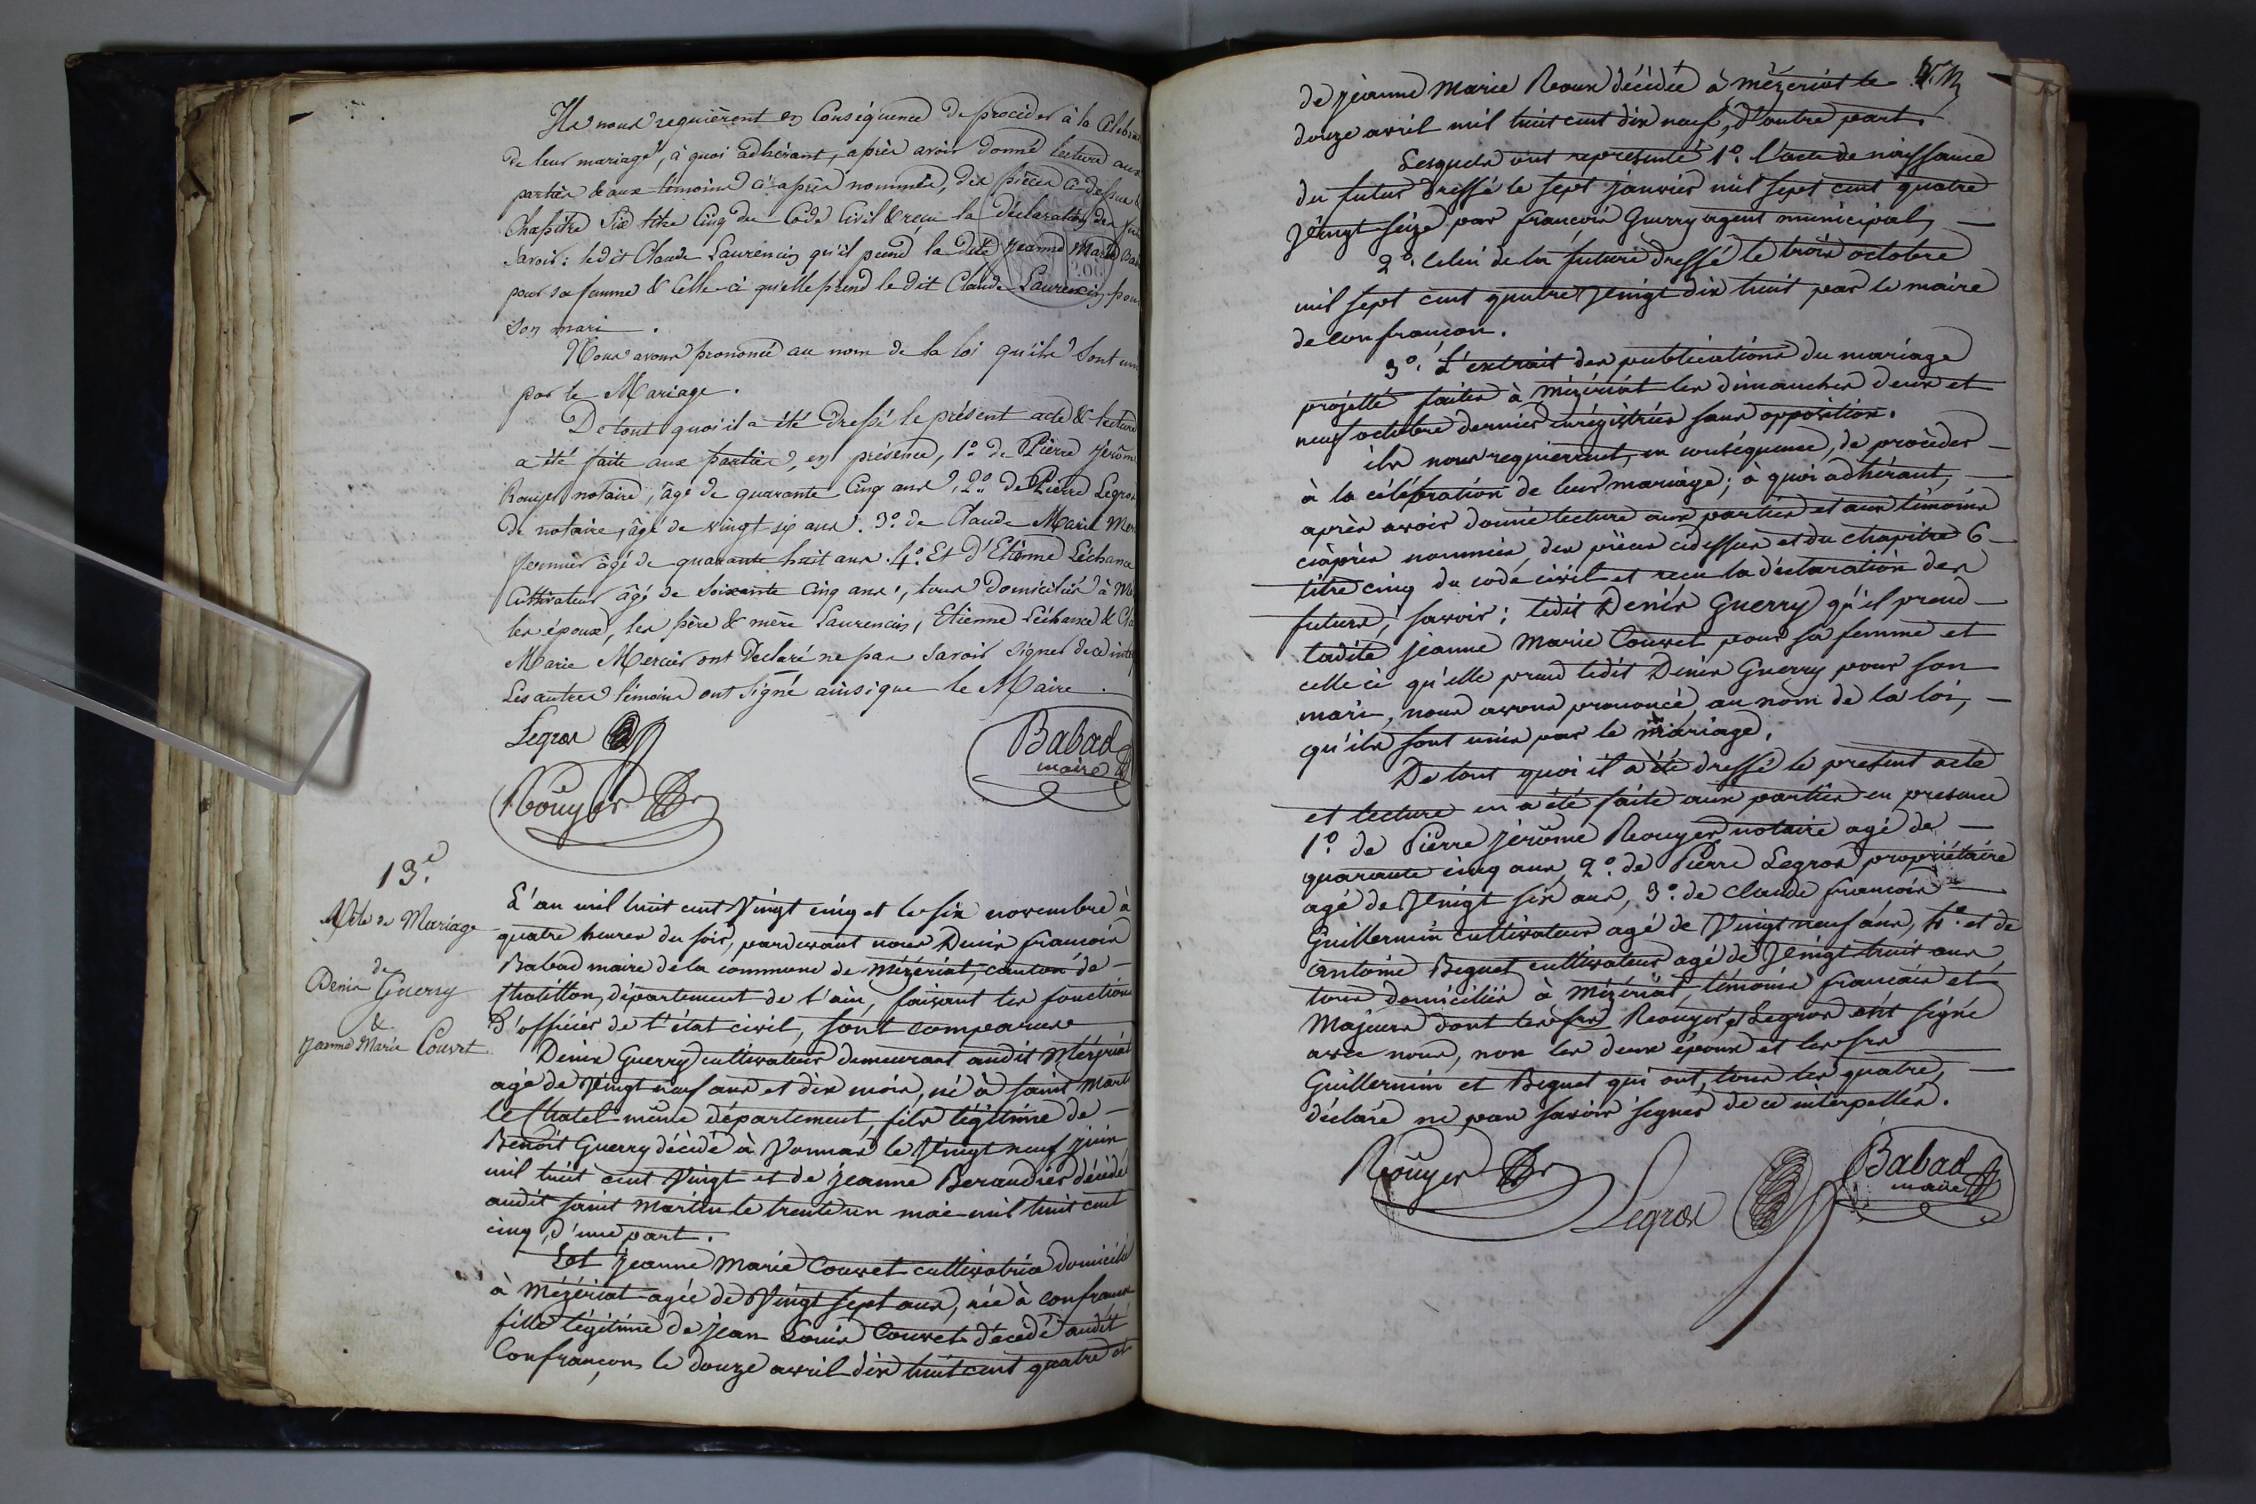 Ils nous requièrent en Conséquence de procéder à la Célébra
de leur mariage, à quoi adhérant, après avoir donné lecture aux
parties & aux témoins ci-après nommés, des pièces ci-dessus &
Chapitre Six titre Cinq du Code Civil & reçu la déclaration des fu
Savoir: ledit Claude Laurencin qu'il prend la dite Jeanne Marie
pour sa femme & Celle-ci qu'elle prend le dit Claude Laurencin pour
Son mari.
Nous avons prononcé au nom de la loi qu'ils Sont uni
par le Mariage.
De tout quoi il a été dressé le présent acte & lecture
a été faite aux parties, en présence, 1.° de Pierre Jérôme
Rouyer notaire, âgé de quarante Cinq ans, 2.° de Pierre Legros
de notaire, âgé de vingt-six ans. 3.° de Claude Marie Mer
fermier âgé de quarante huit ans. 4.° Et d'Etienne Léchance
Cultivateur âgé de Soixante Cinq ans, tous domiciliés à Mé
les époux, les père & mère Laurencin, Etienne Léchance & Cla
Marie Mercier ont Déclaré ne pas Savoir Signer de ce inter
Les autres témoins ont Signé ainsi que le Maire.
Legros
Babad
maire
Rouyer
13.e
Acte de Mariage
de
Denis Guerry
&
Jeanne Marie Couvet
L'an mil huit cent Vingt cinq et le six novembre à
quatre heures du soir, pardevant nous Denis françois
Babad maire de la commune de Mézériat, canton de
Chatillon, département de l'ain, faisant les fonctions
d'officier de l'état civil, sont comparus
Denis Guerry cultivateur demeurant audit Mézériat
agé de Vingt neuf ans et dix mois, né à saint Marti
le Chatel même département, fils légitime de
Benoit Guerry décédé à Vonnas le Vingt neuf juin
mil huit cent Vingt et de jeanne Beraudier décédé
audit saint Martin le trente un mai mil huit cent
cinq, d'une part.
Et jeanne Marie Couvet cultivatrice domicilié
à Mézériat agée de Vingt sept ans, née à confrançon
fille légitime de jean Louis Couvet décédé audit
Confrançon, le douze avril dix huit cent quatre et
de jeanne Marie Roux décédée à mézériat le
douze avril mil huit cent dix neuf, d'autre part.
Lesquels ont représenté 1.° l'acte de naissance
du futur dressé le sept janvier mil sept cent quatre
Vingt seize par françois Guerry agent municipal,
2.° Celui de la future dressé le trois octobre
mil sept cent quatre Vingt dix huit par le maire
de confrançon.
3.° L'extrait des publications du mariage
projetté faites à Mézériat les dimanches deux et
neuf octobre dernier enrégistrées sans opposition.
ils nous requierent, en conséquence, de procéder
à la célébration de leur mariage; à quoi adhérant,
après avoir donné lecture aux parties et aux témoins
ciaprès nommés, des pièces cidessus et du chapitre 6
titre cinq du code civil et reçu la déclaration des
futurs, savoir; ledit Denis Guerry qu'il prend
ladite jeanne Marie Couvet pour sa femme et
celle ci qu'elle prend ledit Denis Guerry pour son
mari, nous avons prononcé, au nom de la loi,
qu'ils sont unis par le mariage.
De tout quoi il a été dressé le présent acte
et lecture en a été faite aux parties en présence
1.° de Pierre jérôme Rouyer notaire agé de
quarante cinq ans, 2.° de Pierre Legros propriétaire
agé de Vingt six ans, 3.° de claude françois
Guillermin cultivateur agé de Vingt neuf ans, 4.° et de
antoine Biguet cultivateur agé de Vingt huit ans
tous domiciliés à Mézériat, témoins français et
Majeurs dont les srs Rouyer et Legros ont signé
avec nous, non les deux époux et les srs
Guillermin et Biguet qui ont, tous les quatre,
déclaré ne pas savoir signer de ce interpellés.
Rouyer
Legros
Babad
maire